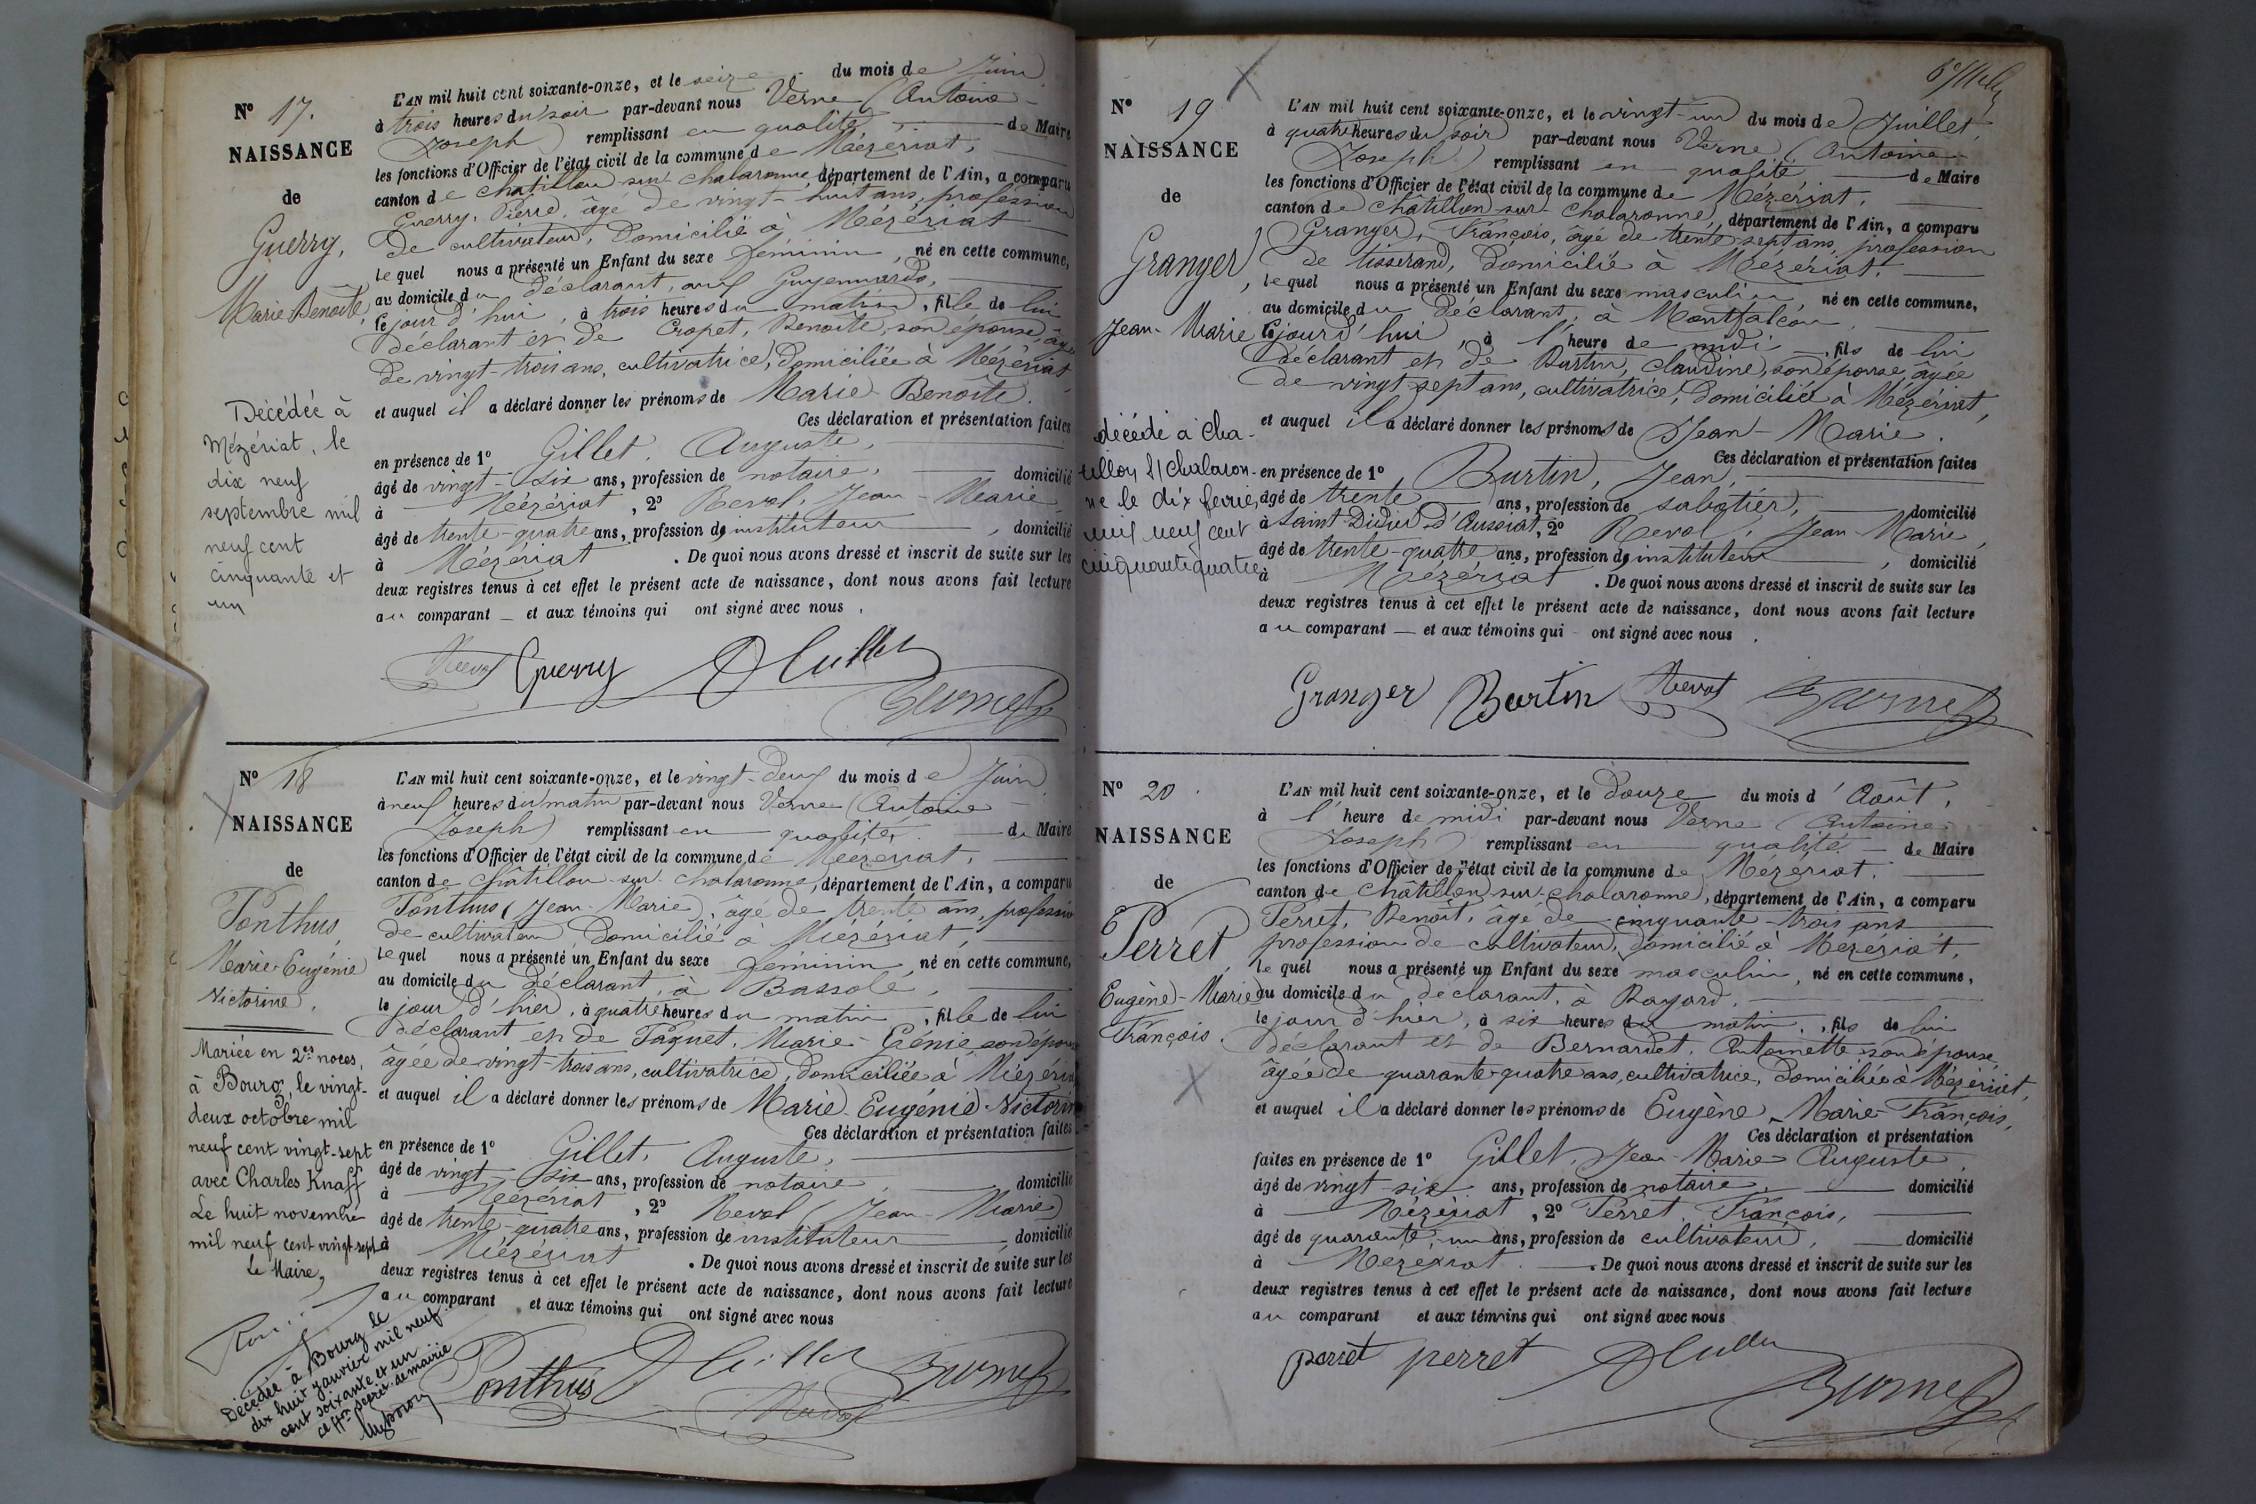 N° 17.
NAISSANCE
de
Guerry,
Marie Benoîte
Décédée à
Mézériat, le
dix neuf
septembre mil
neuf cent
cinquante et
un
L'AN mil huit cent soixante-onze, et le seize du mois de Juin
à trois heures du soir par-devant nous Verne (Antoine-
Joseph) remplissant en qualité de Maire
les fonctions d'Officier de l'état civil de la commune de Mézériat,
canton de Chatillon sur chalaronne, département de l'Ain, a comparu
Guerry, Pierre, âgé de vingt-huit ans, profession
de cultivateur, domicilié à Mézériat
lequel nous a présenté un Enfant du sexe féminin, né en cette commune,
au domicile du déclarant, aux
le jour d'hui, à trois heures du matin, fille de lui
déclarant et de Cropet, Benoîte, son épouse, âgée
de vingt-trois ans, cultivatrice, domiciliée à Mézériat,
et auquel il a déclaré donner les prénoms de Marie Benoîte.
Ces déclaration et présentation faites
en présence de 1° Gillet, Auguste,
âgé de vingt-six ans, profession de notaire, domicilié
à Mézériat, 2° Revol, Jean-Marie
âgé de trente-quatre ans, profession de instituteur, domicilié
à Mézériat. De quoi nous avons dressé et inscrit de suite sur les
deux registres tenus à cet effet le présent acte de naissance, dont nous avons fait lecture
au comparant et aux témoins qui ont signé avec nous.
Revol Guerry
N° 18
NAISSANCE
de
Ponthus,
Marie-Eugénie
Victorine,
Mariée en 2es noces,
à Bourg, le vingt-
deux octobre mil
neuf cent vingt-sept
avec Charles Knaff
Le huit novembre
mil neuf cent vingt-sept
le Maire,
Décédée à Bourg le
dix huit janvier mil neuf
cent soixante et un
L'AN mil huit cent soixante-onze, et le vingt-deux du mois de Juin
à neuf heures du matin par-devant nous Verne (Antoine-
Joseph) remplissant en qualité, de Maire
les fonctions d'Officier de l'état civil de la commune de Mézériat,
canton de Châtillon-sur-chalaronne, département de l'Ain, a comparu
Ponthus (Jean-Marie), âgé de trente ans, profession
de cultivateur, domicilié à Mézériat,
lequel nous a présenté un Enfant du sexe féminin, né en cette commune,
au domicile du déclarant, à Bassole,
le jour d'hier, à quatre heures du matin, fille de lui
déclarant et de Paquet, Marie-Génie son épouse
âgée de vingt-trois ans, cultivatrice, domiciliée à Mézériat
et auquel il a déclaré donner les prénoms de Marie-Eugénie-Victorine
Ces déclaration et présentation faites
en présence de 1° Gillet, Auguste,
âgé de vingt-six ans, profession de notaire, domicilié
à Mézériat, 2° Revol (Jean-Marie)
âgé de trente-quatre ans, profession de instituteur, domicilié
à Mézériat. De quoi nous avons dressé et inscrit de suite sur les
deux registres tenus à cet effet le présent acte de naissance, dont nous avons fait lecture
au comparant et aux témoins qui ont signé avec nous
Ponthus
Revol
N° 19
NAISSANCE
de
Granger,
Jean-Marie
décédé à Cha-
tillon s/ Chalaron-
ne le dix février
mil neuf cent
cinquante quatre
L'AN mil huit cent soixante-onze, et le vingt-un du mois de Juillet
à quatre heures du soir par-devant nous Verne (Antoine-
Joseph) remplissant en qualité de Maire
les fonctions d'Officier de l'état civil de la commune de Mézériat,
canton de Châtillon-sur-chalaronne, département de l'Ain, a comparu
Granger, François, âgé de trente-sept ans, profession
de tisserand, domicilié à Mézériat,
lequel nous a présenté un Enfant du sexe masculin, né en cette commune,
au domicile du déclarant, à Montfalcon,
le jour d'hui, à l'heure de midi, fils de lui
déclarant et de Burtin, Claudine, son épouse, âgée
de vingt-sept ans, cultivatrice, domiciliée à Mézériat,
et auquel il a déclaré donner les prénoms de Jean-Marie.
Ces déclaration et présentation faites
en présence de 1° Burtin, Jean,
âgé de trente ans, profession de sabotier, domicilié
à Saint-Didier-d'Aussiat, 2° Revol, Jean-Marie,
âgé de trente-quatre ans, profession de instituteur, domicilié
à Mézériat. De quoi nous avons dressé et inscrit de suite sur les
deux registres tenus à cet effet le présent acte de naissance, dont nous avons fait lecture
au comparant et aux témoins qui ont signé avec nous.
Granger Burtin Revol
N° 20
NAISSANCE
de
Perret,
Eugène-Marie
François.
L'AN mil huit cent soixante-onze, et le douze du mois d'Août,
à l'heure de midi par-devant nous Verne (Antoine-
Joseph) remplissant en qualité de Maire
les fonctions d'Officier de l'état civil de la commune de Mézériat,
canton de Châtillon-sur-chalaronne, département de l'Ain, a comparu
Perret, Benoît, âgé de cinquante-trois ans
profession de cultivateur, domicilié à Mézériat,
lequel nous a présenté un Enfant du sexe masculin, né en cette commune,
au domicile du déclarant, à Rayard,
le jour d'hier, à six heures du matin, fils de lui
déclarant et de Bernardet, Antoinette son épouse,
âgée de quarante-quatre ans, cultivatrice, domiciliée à Mézériat,
et auquel il a déclaré donner les prénoms de Eugène-Marie-François,
Ces déclaration et présentation
faites en présence de 1° Gillet, Jean-Marie-Auguste,
âgé de vingt-six ans, profession de notaire, domicilié
à Mézériat, 2° Perret, François,
âgé de quarante-un ans, profession de cultivateur, domicilié
à Mézériat. De quoi nous avons dressé et inscrit de suite sur les
deux registres tenus à cet effet le présent acte de naissance, dont nous avons fait lecture
au comparant et aux témoins qui ont signé avec nous
perret perret